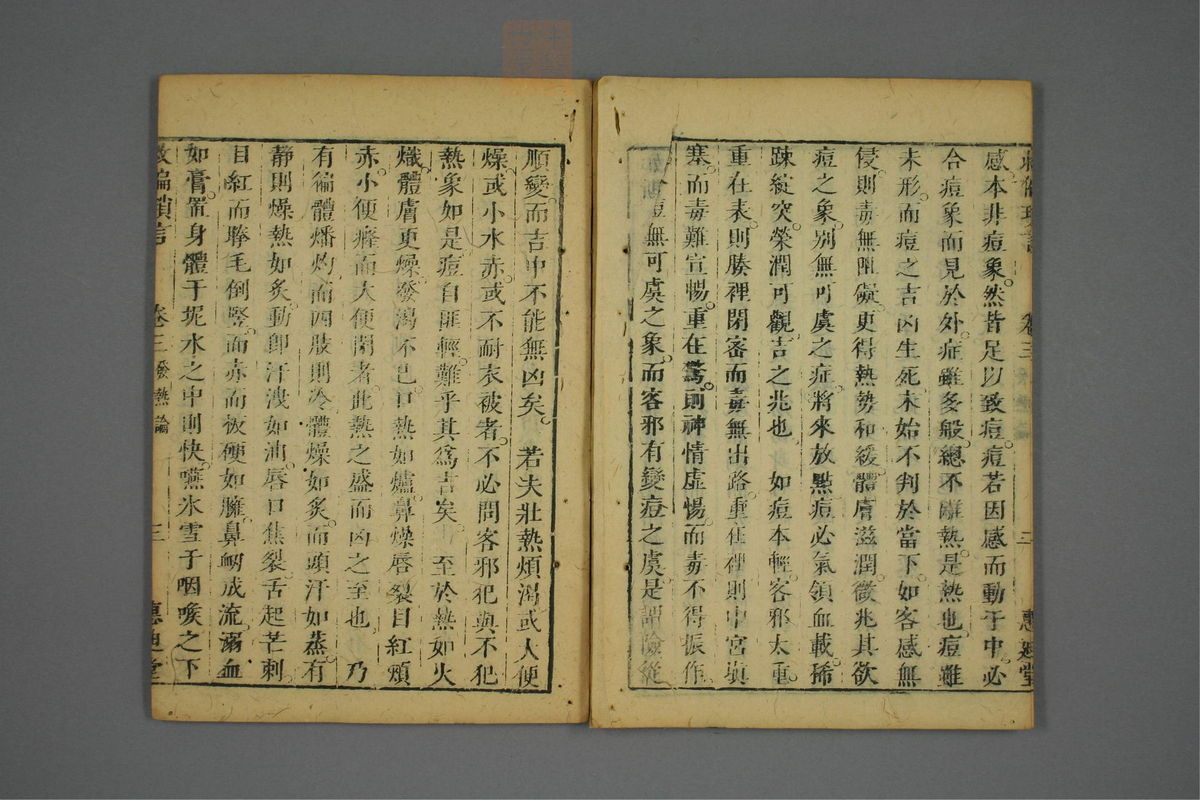 卷三
二
惠迪堂
感本非痘象然皆足以致痘痘若因感而動于中必
合痘象而見於外症雖多般總不離熱是熱也痘雖
未形而痘之吉凶生死未始不判於當下如客感無
侵則毒無阻礙更得熱勢和緩體膚滋潤微兆其欲
痘之象別無可虞之症將來放點痘必氣領血載稀
踈綻突榮潤可觀吉之兆也 如痘本輕客邪太重
重在表則腠裡閉密而毒無出路重在裡則中宮塡
塞而毒難宣暢重在驚則神情虛惕而毒不得振作
痘無可虞之象而客邪有變痘之虞是謂險從
順變而吉中不能無凶矣 若夫壯熱煩渴或大便
燥或小水赤或不耐衣被者不必問客邪犯與不犯
熱象如是痘自匪輕難乎其爲吉矣 至於熱如火
熾體膚更燥發渴不已口熱如爐鼻燥唇裂目紅頰
赤小便癃而大便閉者此熱之盛而凶之至也 乃
有徧體燔灼而四肢則冷體燥如炙而頭汗如蒸有
靜則燥熱如炙動卽汗洩如油唇口焦裂舌起芒刺
目紅而睁毛倒竪而赤而板硬如臃鼻衂成流溺血
如膏置身體于坭水之中則快嚥氷雪于咽喉之下
救偏瑣言
卷三
發熱論
三
惠迪堂